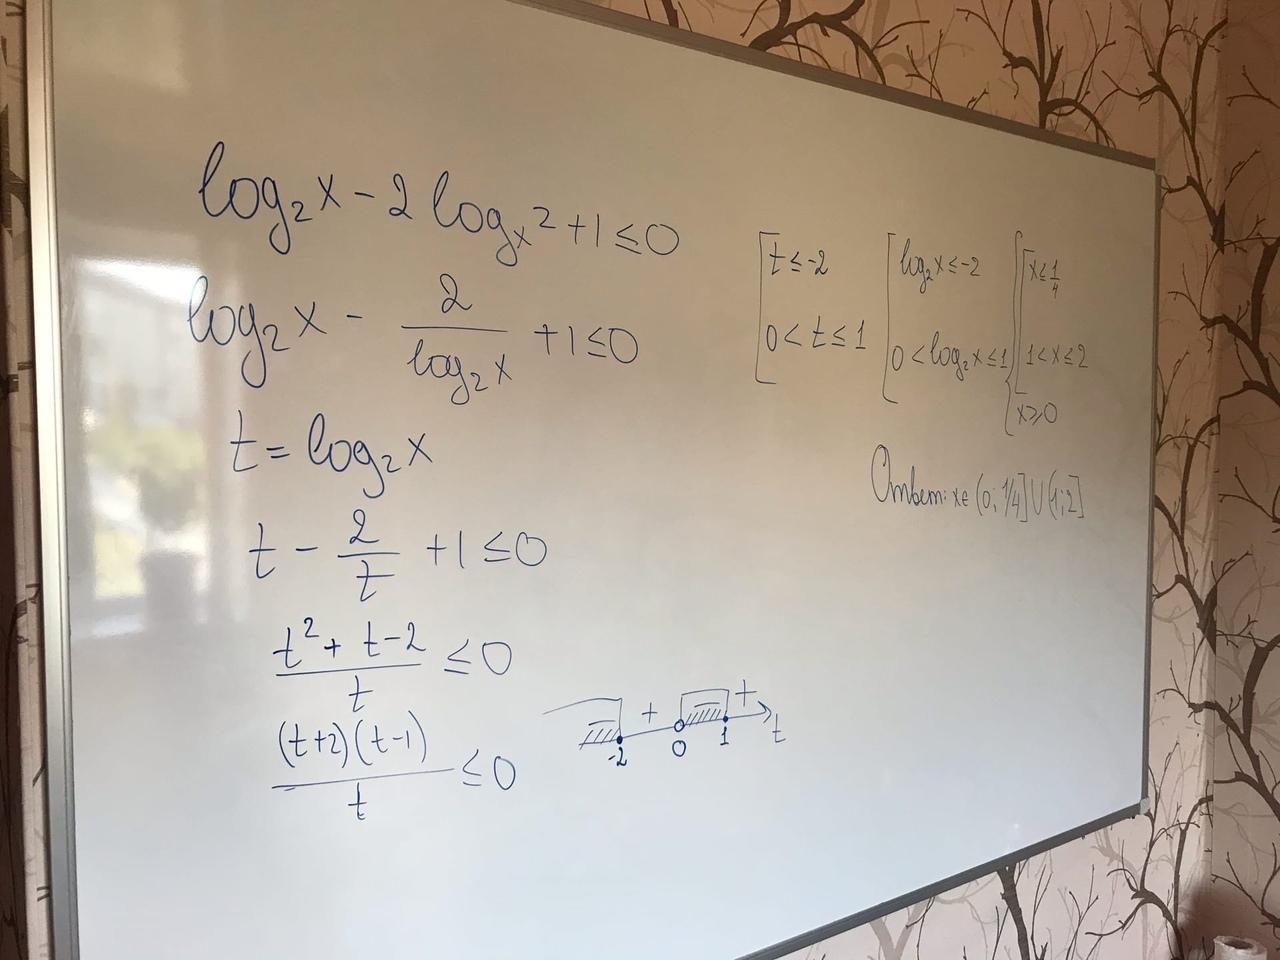 log₂x - 2 logₓ2 + 1 ≤ 0
log₂x - 2/log₂x + 1 ≤ 0
t = log₂x
t - 2/t + 1 ≤ 0
(t² + t - 2)/t ≤ 0
(t+2)(t-1)/t ≤ 0
- + - +
-2 0 1 t
[ t ≤ -2
0 < t ≤ 1
[ log₂x ≤ -2
0 < log₂x ≤ 1
{ [ x ≤ 1/4
1 < x ≤ 2
x ≥ 0
Ответ: x ∈ (0; 1/4] ∪ (1; 2]